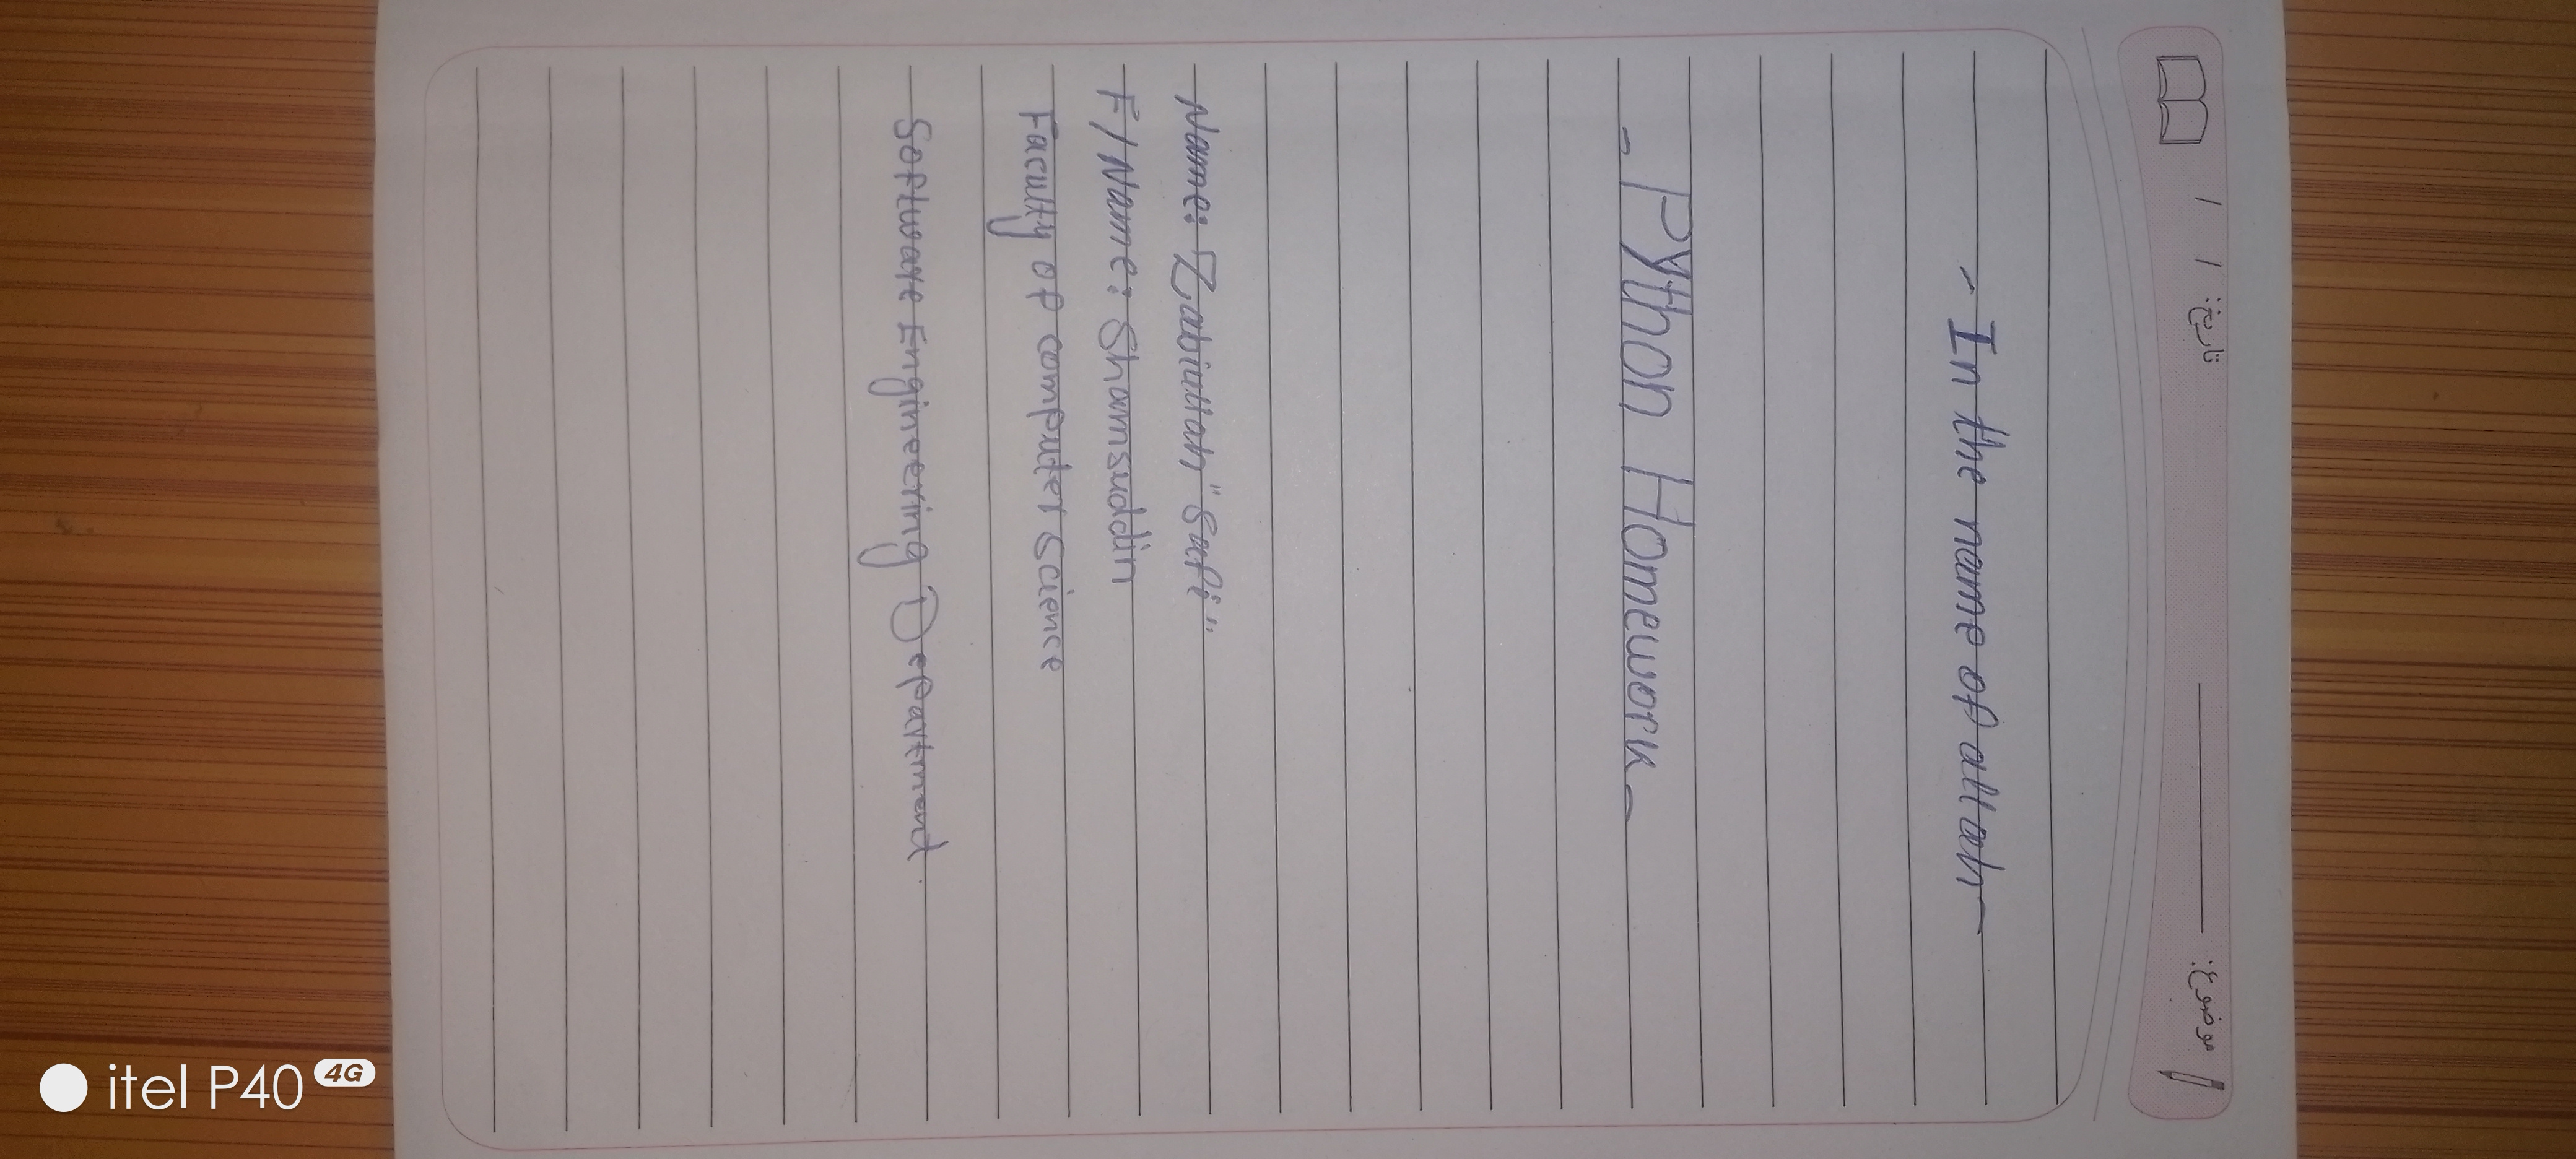 موضوع: تاریخ: / /
- In the name of allah -
- Python Homework -
Name: Zabiullah "Safi"
F/Name: Shamsuddin
Faculty of computer Science
Software Engineering Department.
itel P40 4G